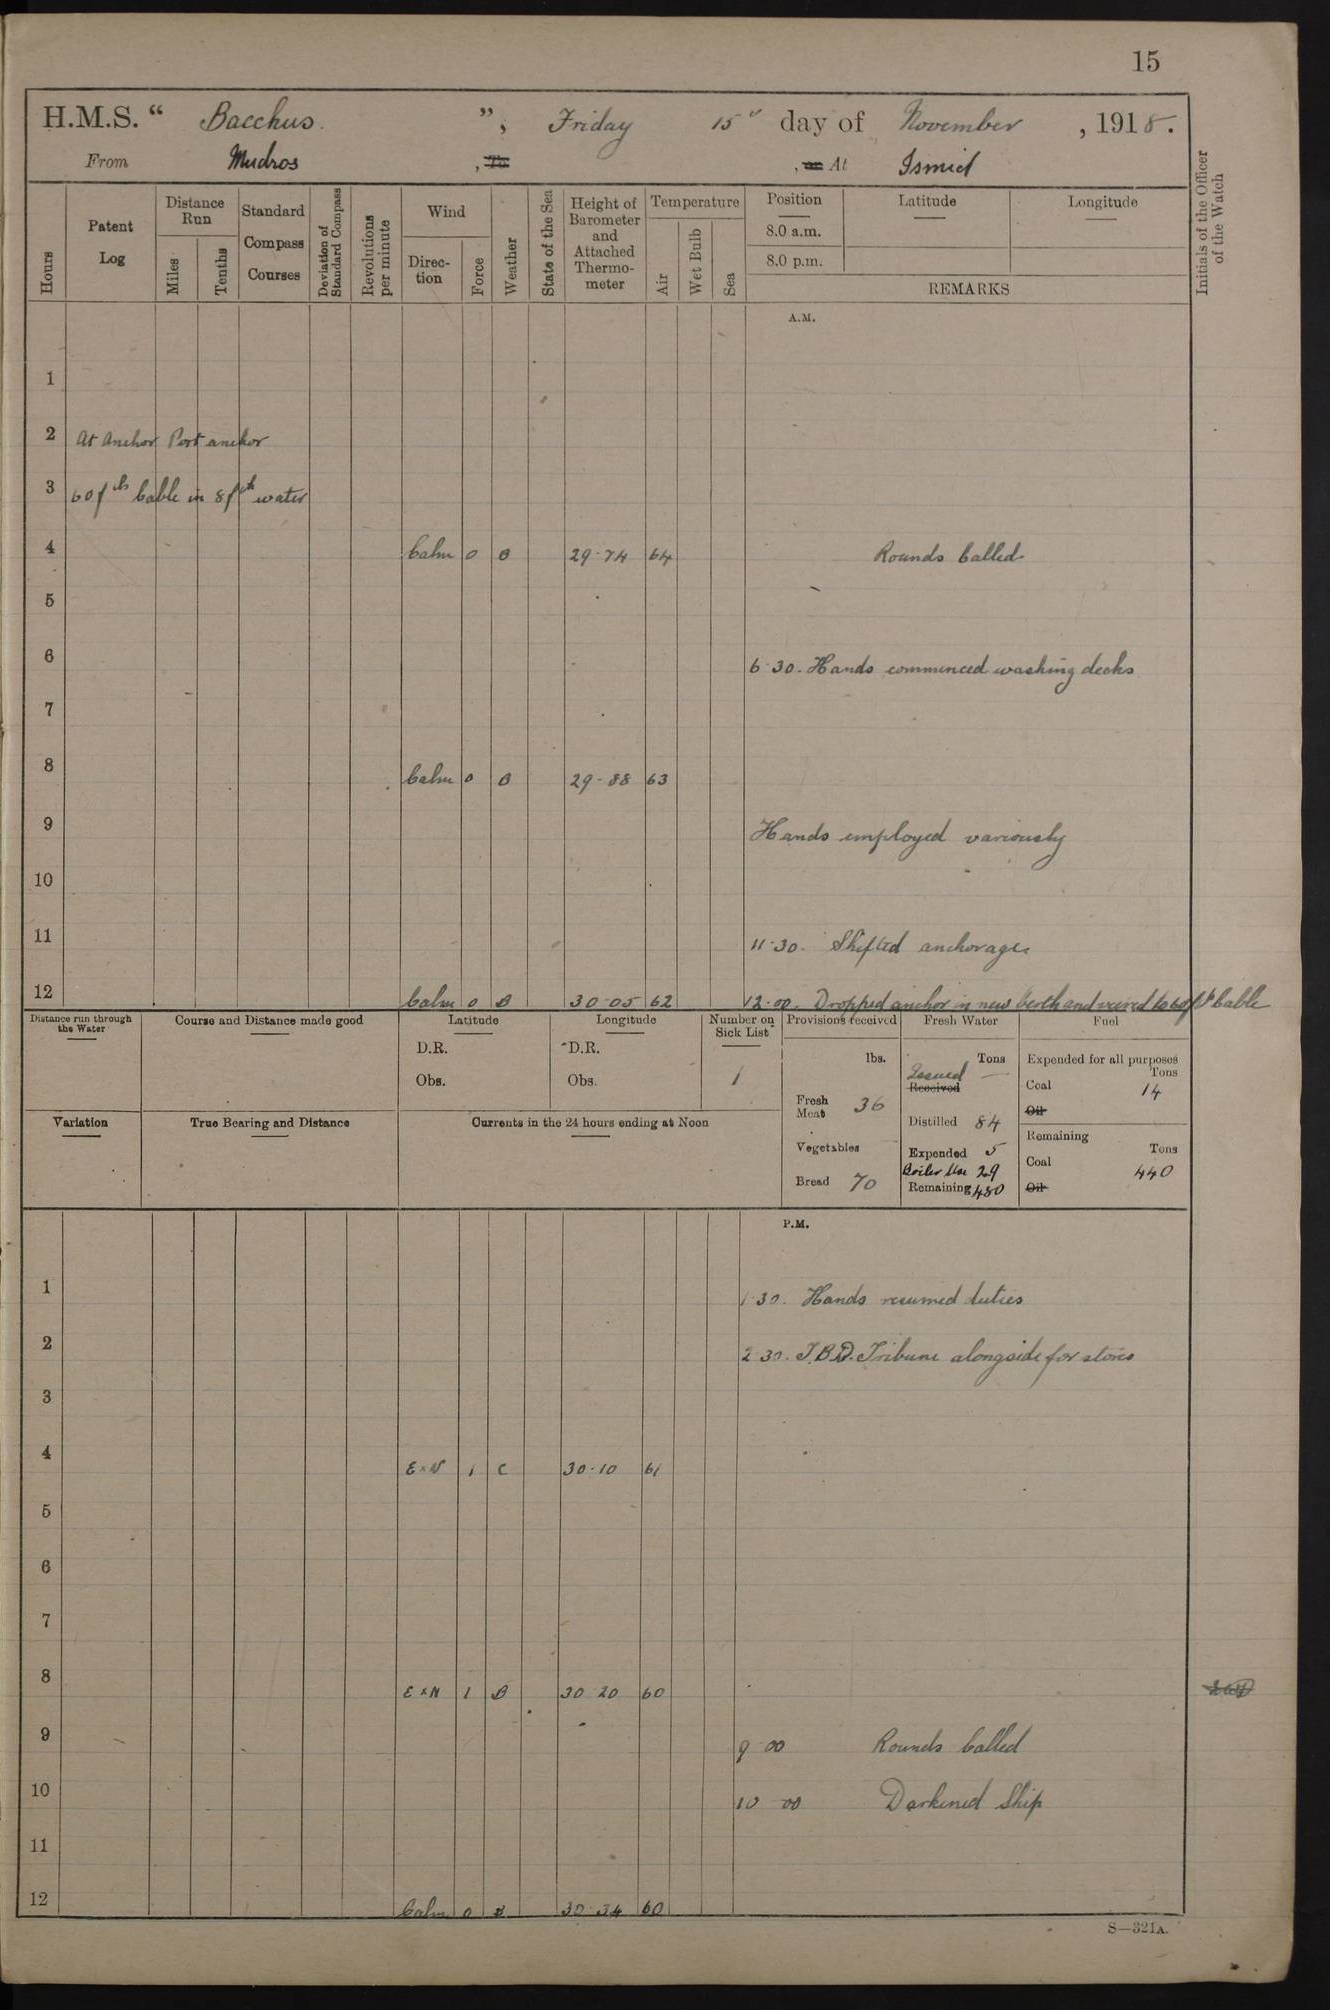 15
H.M.S. “ Bacchus. ”, Friday 15th day of November , 1918.
From Mudros , To , or At Ismid
Hours
Patent Log
Distance Run
Miles
Tenths
Standard Compass Courses
Deviation of Standard Compass
Revolutions per minute
Wind
Direc-tion
Force
Weather
State of the Sea
Height of Barometer and Attached Thermo-meter
Temperature
Air
Wet Bulb
Sea
Position
8.0 a.m.
8.0 p.m.
Latitude
Longitude
REMARKS
Initials of the Officer of the Watch
A.M.
1
2 At Anchor Port anchor
3 60 fths Cable in 8 fth water
4 Calm 0 B 29.74 64 Rounds Called
5
6 6.30. Hands commenced washing decks
7
8 Calm 0 B 29.88 63
9 Hands employed variously
10
11 11.30. Shifted anchorage.
12 Calm 0 B 30.05 62 12.00. Dropped anchor in new berth and veered to 60 fth Cable
Distance run through the Water
Course and Distance made good
Latitude
D.R.
Obs.
Longitude
D.R.
Obs.
Number on Sick List
1
Provisions received
lbs.
Fresh Meat 36
Vegetables
Bread 70
Fresh Water
Tons
Issued —
Received
Distilled 84
Expended 5
Boiler Use 29
Remaining 480
Fuel
Expended for all purposes
Tons
Coal 14
Oil
Remaining
Tons
Coal 440
Oil
Variation
True Bearing and Distance
Currents in the 24 hours ending at Noon
P.M.
1 1.30. Hands resumed duties
2 2.30. T.B.D. Tribune alongside for stores
3
4 E x N 1 C 30.10 61
5
6
7
8 E x N 1 B 30 20 60
9 9 00 Rounds Called
10 10 00 Darkened Ship
11
12 Calm 0 B 30 34 60
S—321A.